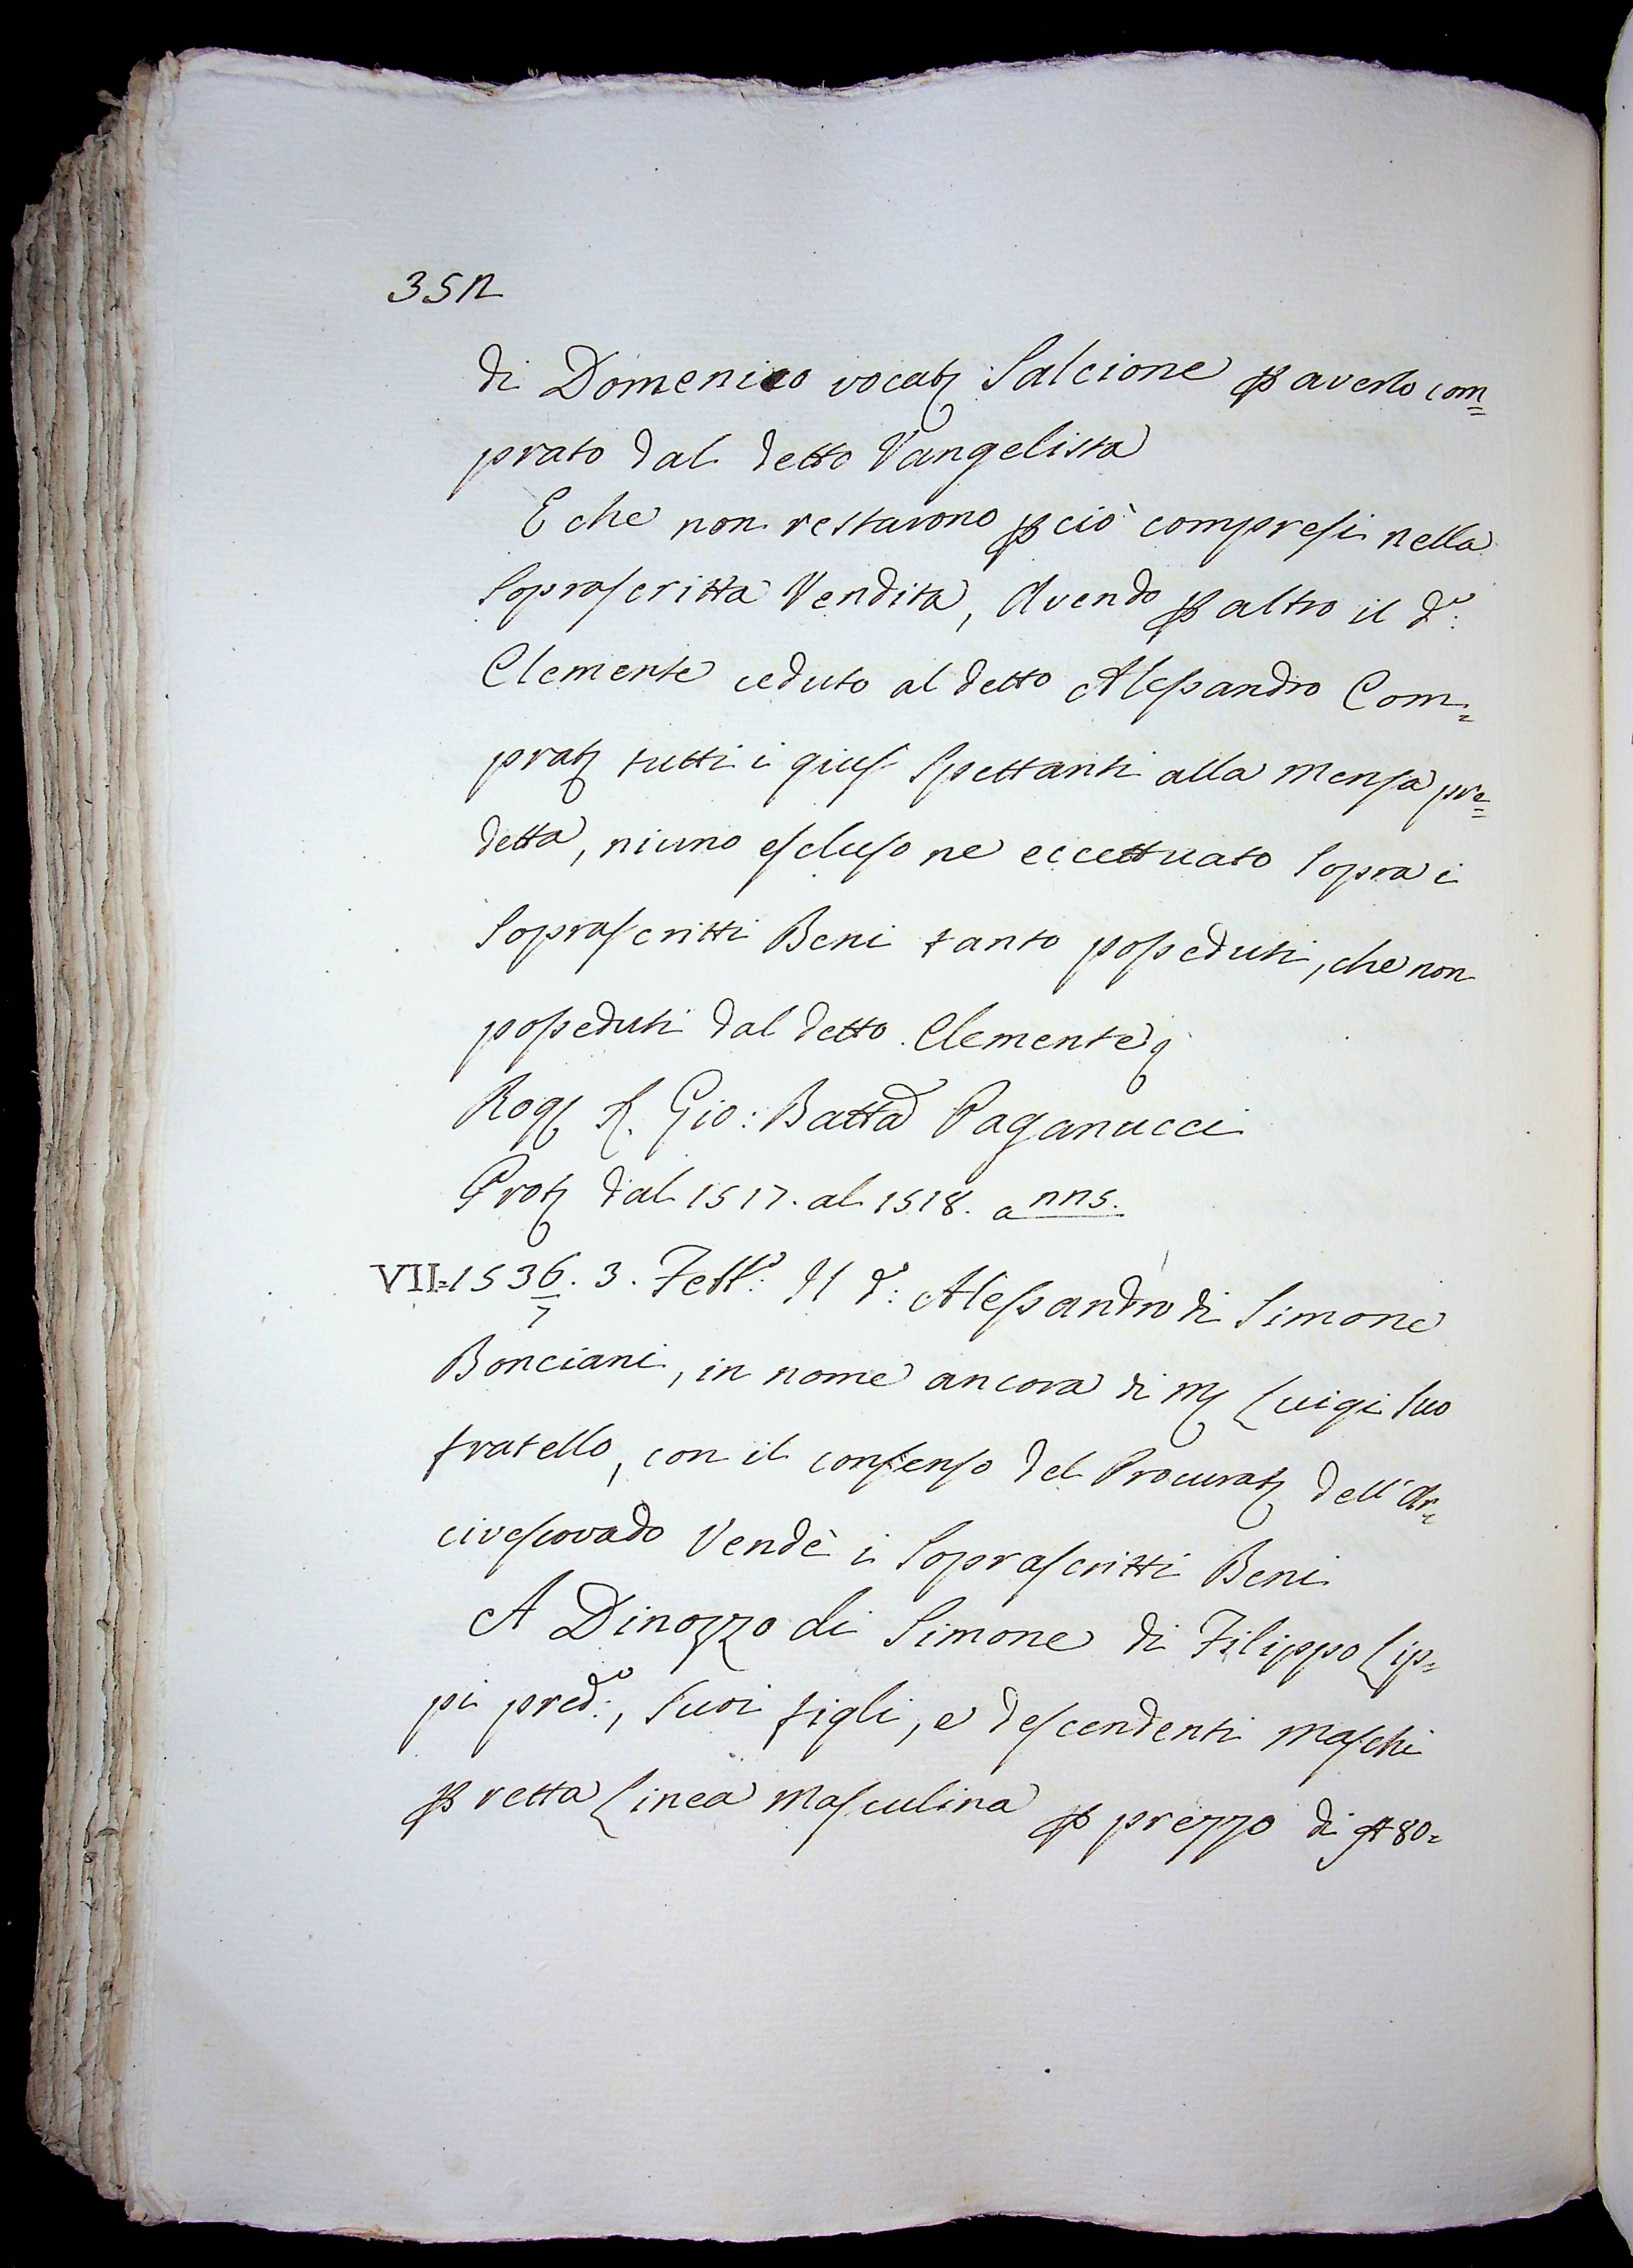 352
di Domenico vocatꝫ Salcione ꝑ averlo com=
prato dal detto Vangelista
E che non restarono ꝑ ciò compresi nella
Soprascritta Vendita, Avendo ꝑ altro il d.º
Clemente ceduto al detto Alessandro Com=
pratꝫ tutti i gius spettanti alla Mensa pre=
detta, niuno escluso ne eccettuato sopra i
Soprascritti Beni tanto posseduti, che non
posseduti dal detto Clemente
Rogꝫ S. Gio: Batta Paganucci
Protꝫ dal 1517. al 1518. a
VII=1536/7. 3. Febb.º Il d.º Alessandro di Simone
Bonciani, in nome ancora di Mꝫ Luigi suo
fratello, con il consenso del Procuratꝫ dell'Ar=
civescovado Vendè i Soprascritti Beni
A Dinozzo di Simone di Filippo Lip=
pi pred.º, suoi figli, e descendenti maschi
ꝑ retta Linea Masculina ꝑ prezzo di 80=